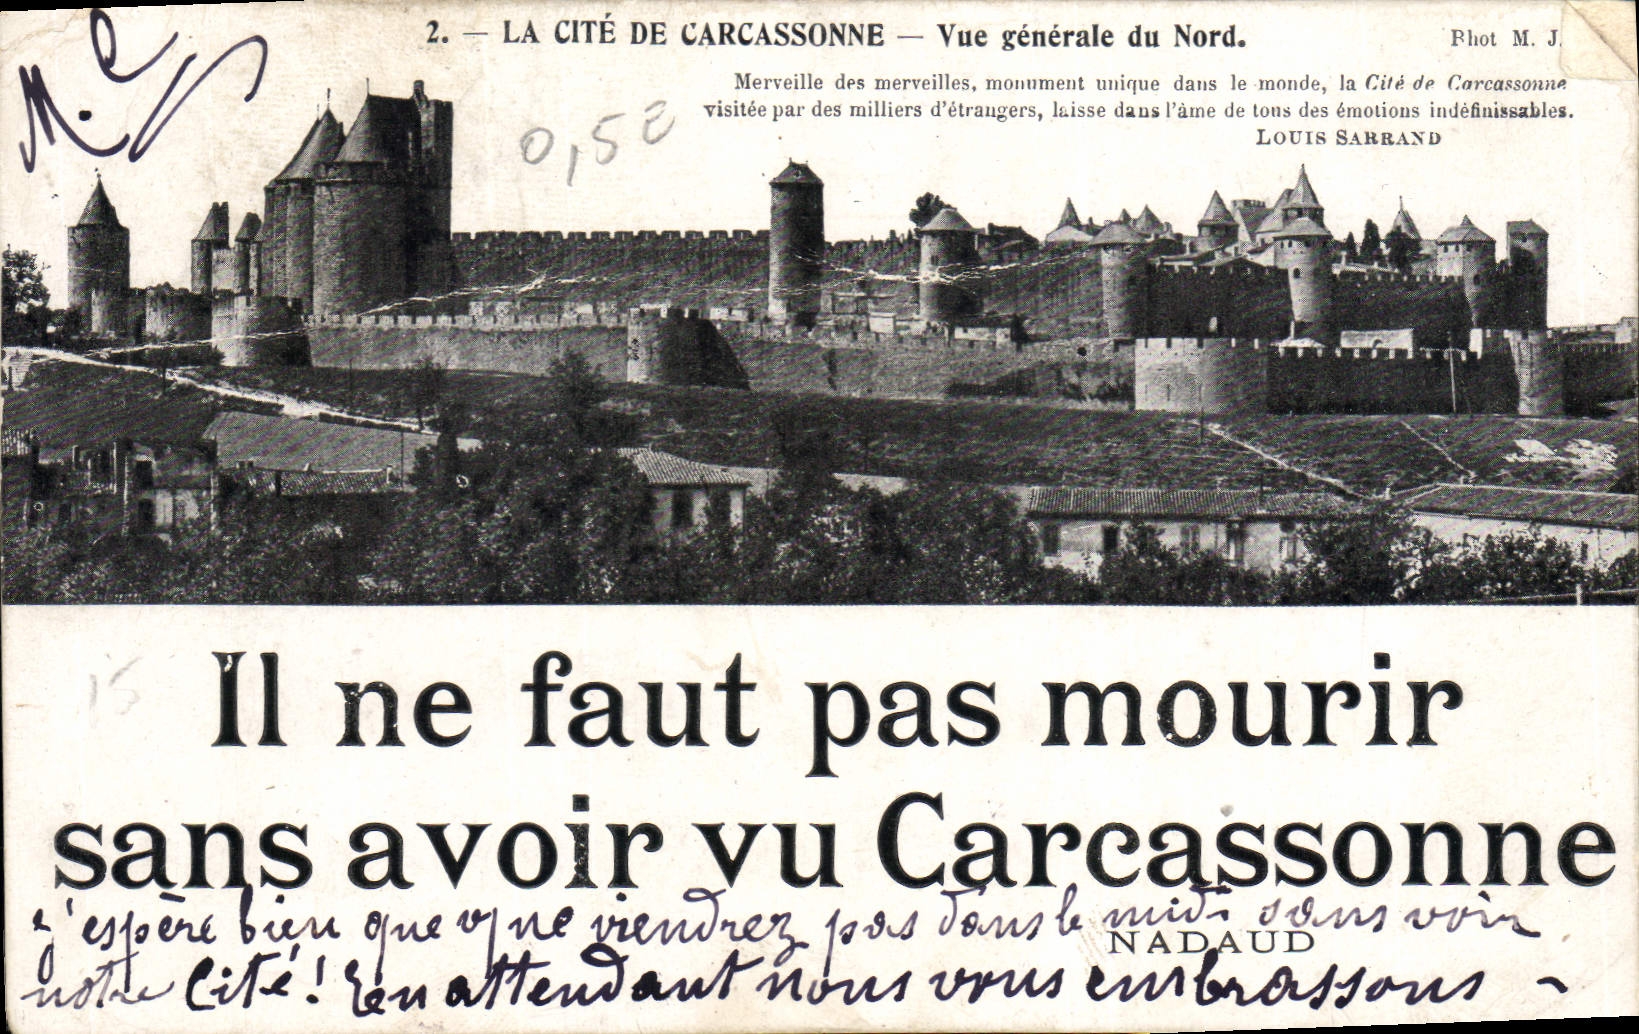 2. — LA CITÉ DE CARCASSONNE — Vue générale du Nord.
Phot M. J.
Merveille des merveilles, monument unique dans le monde, la Cité de Carcassonne
visitée par des milliers d'étrangers, laisse dans l'âme de tous des émotions indéfinissables.
LOUIS SARRAND
0,50
15
Il ne faut pas mourir
sans avoir vu Carcassonne
NADAUD
j'espère bien que ne viendrez pas dans le midi sans voir
notre Cité! En attendant nous vous embrassons -